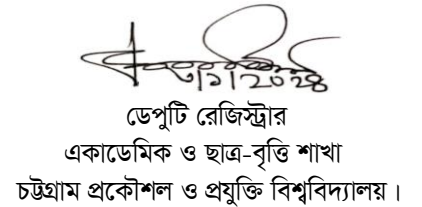 ডেপুটি রেজিস্ট্রার
একাডেমিক ও ছাত্র-বৃত্তি শাখা
চট্টগ্রাম প্রকৌশল ও প্রযুক্তি বিশ্ববিদ্যালয়।